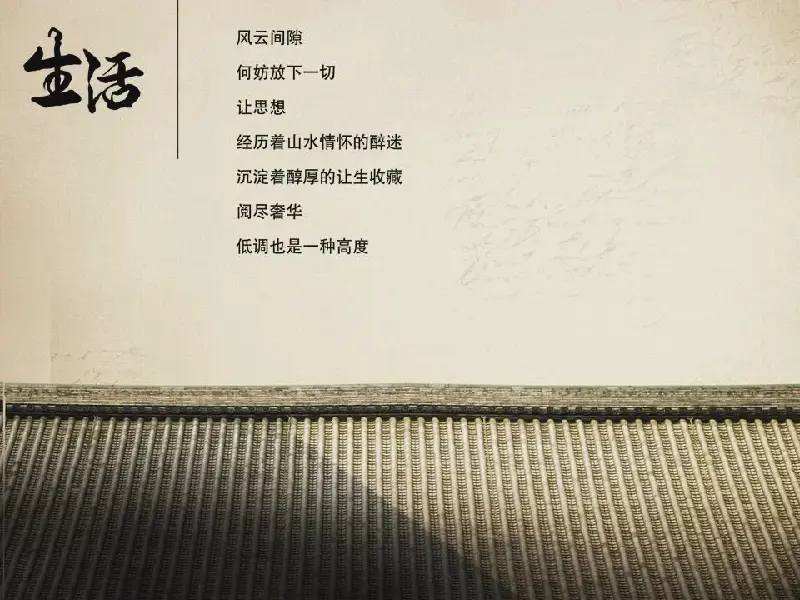 生活
风云间隙
何妨放下一切
让思想
经历着山水情怀的醉迷
沉淀着醇厚的让生收藏
阅尽奢华
低调也是一种高度